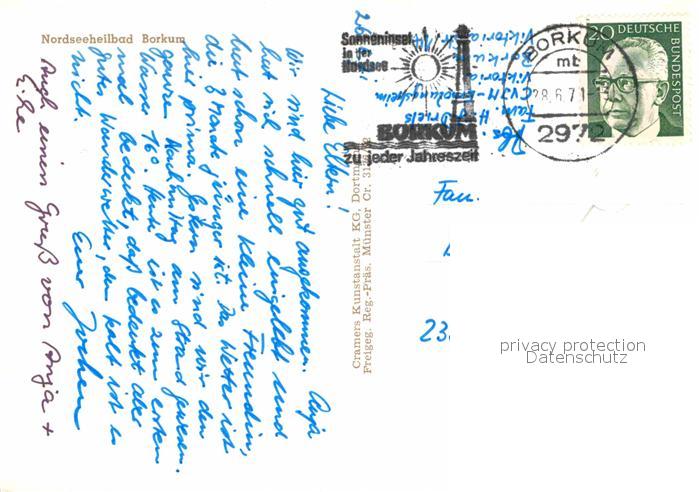 Nordseeheilbad Borkum
Liebe Eltern!
Wir sind hier gut angekommen. Anja
hat sich schnell eingelebt und
hat schon eine kleine Freundin,
die 3 Monate jünger ist. Das Wetter ist
hier prima. Gestern sind wir den
ganzen Nachmittag am Strand gewesen.
Wasser 16°. Heute ist es zum ersten
mal bedeckt, daß bedeutet aber
gutes Wanderwetter, denn kalt ist es
nicht.
Eure Jochen
Auch einen Gruß von Anja +
Elke
Cramers Kunstanstalt KG, Dortmund
Freigeg. Reg.-Präs. Münster Cr.
Abs.:
Fam. H.
CVJM-
Viktoria
Borkum
Sonneninsel
in der
Nordsee
BORKUM
zu jeder Jahreszeit
BORKUM
mb
28.6.71
2972
20 DEUTSCHE
BUNDESPOST
Fam.
23
privacy protection
Datenschutz